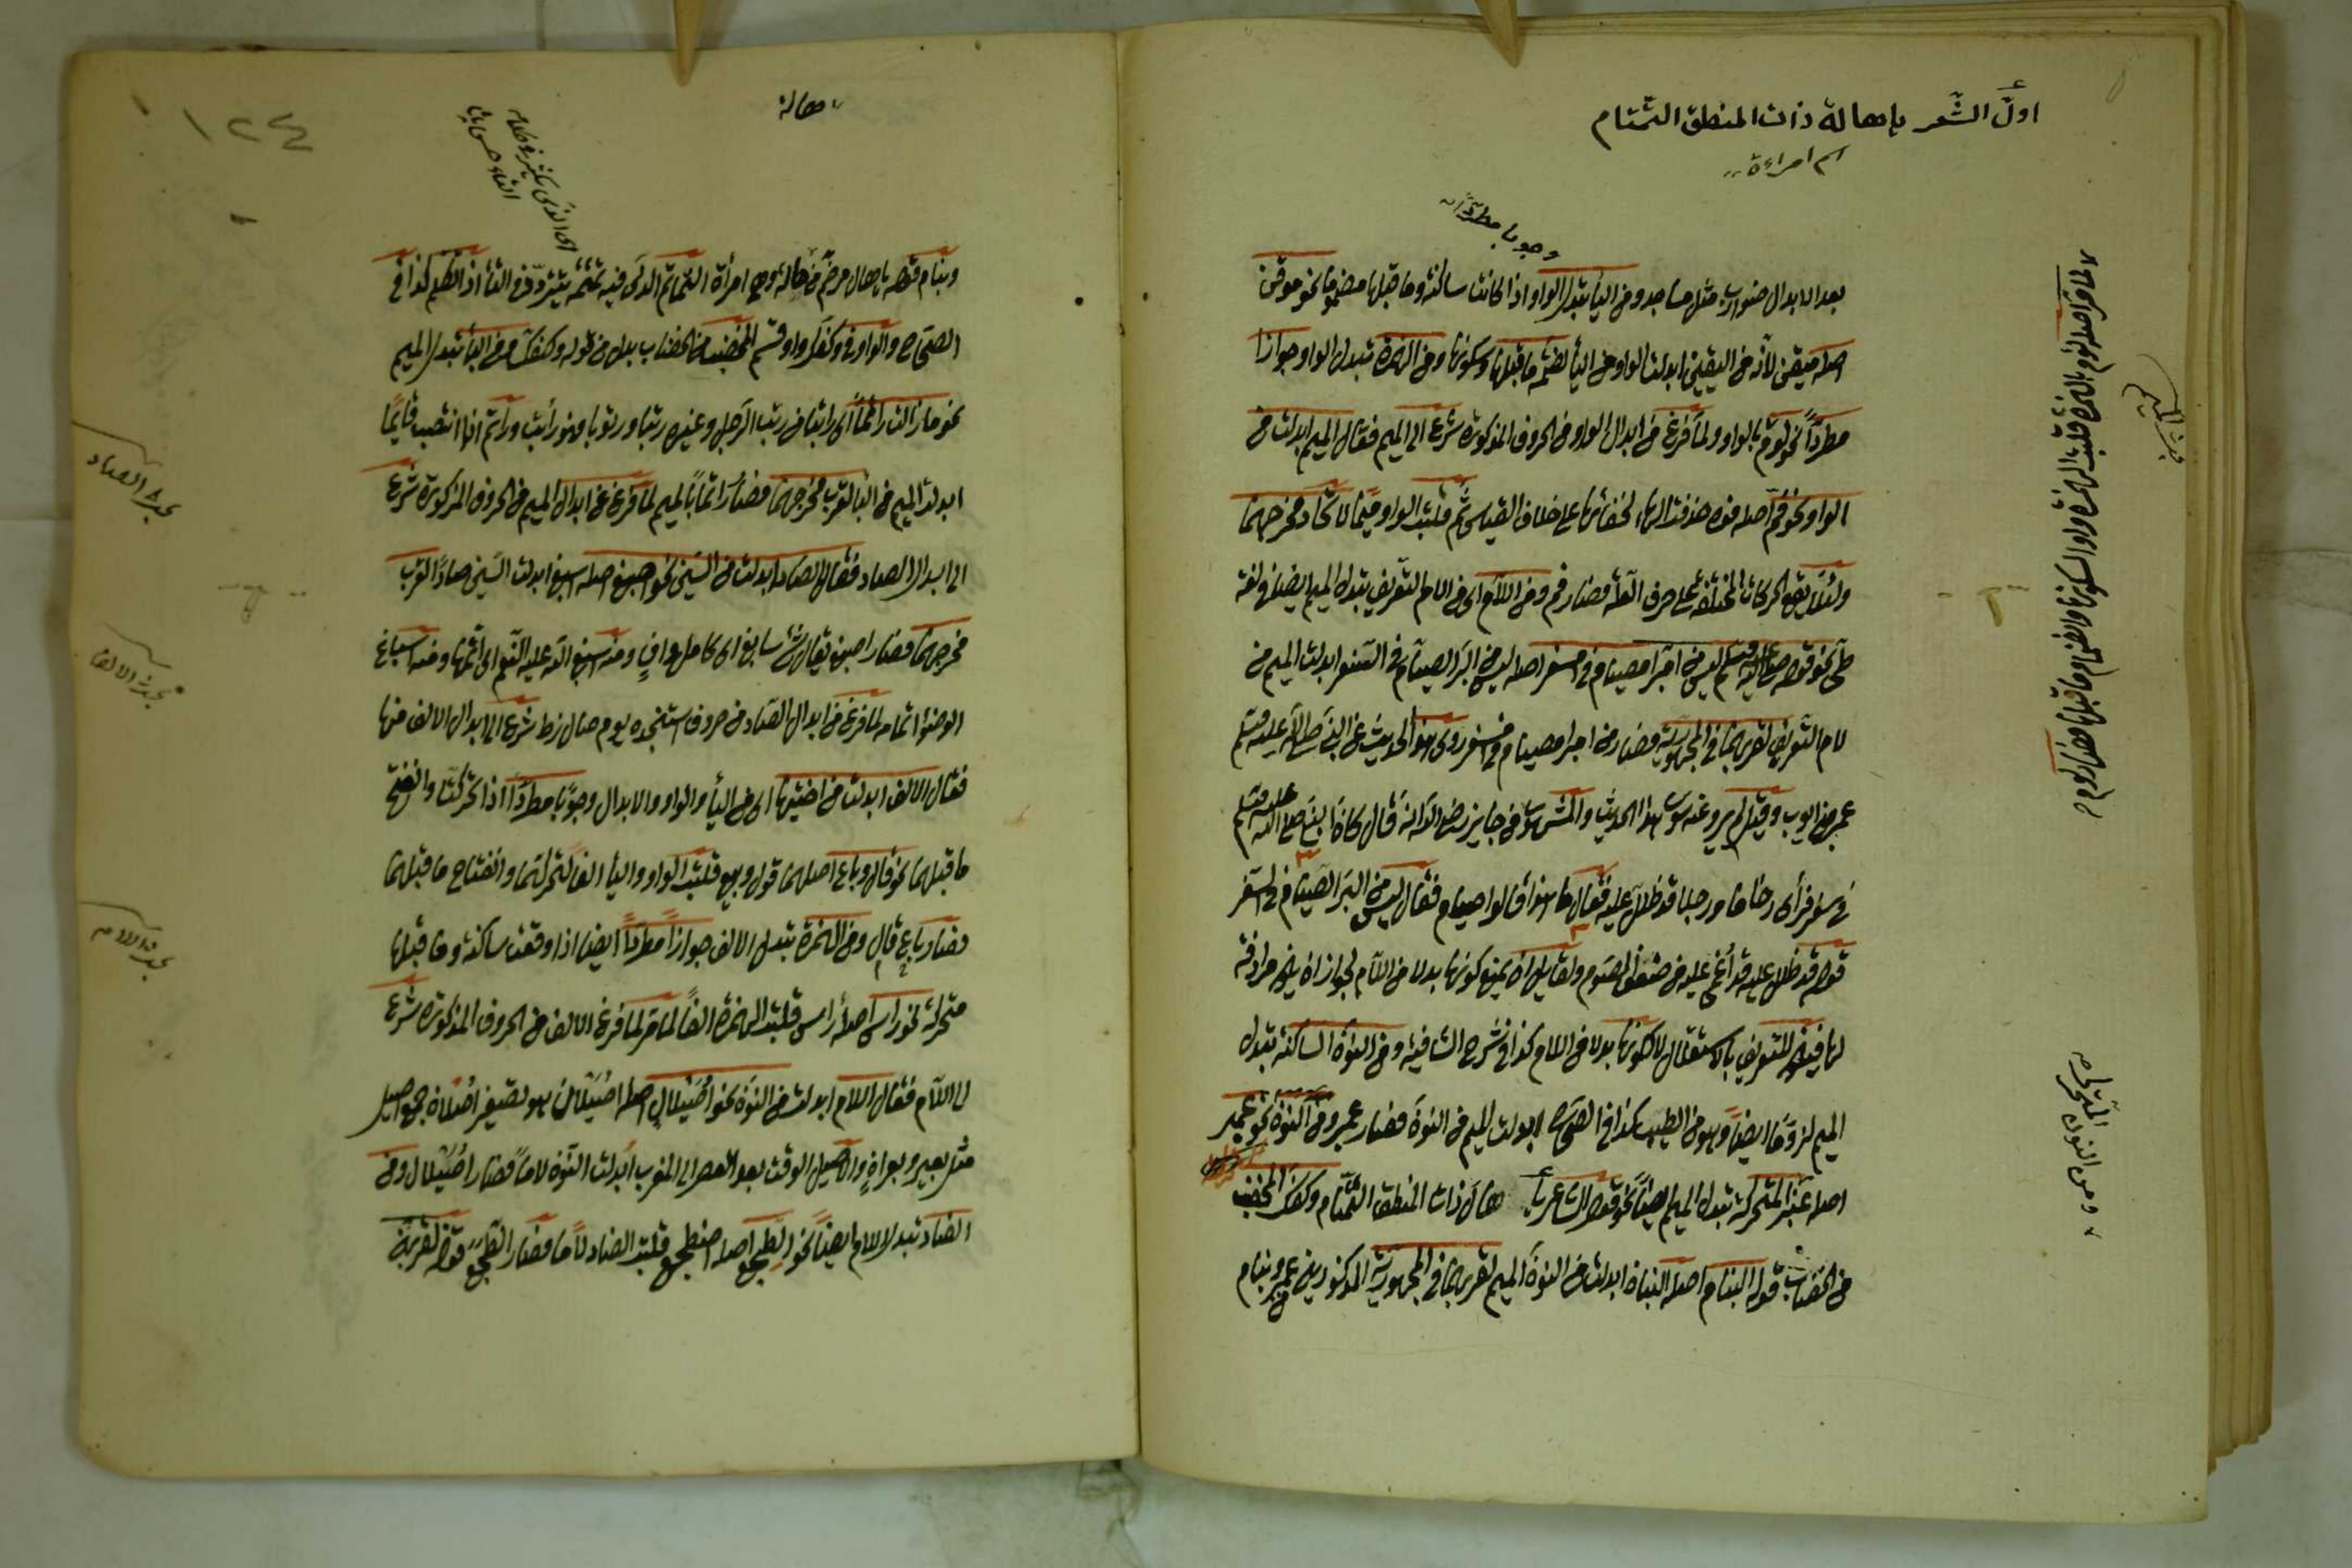 اولّ الشَّعر يإهالة ذات المنطق التمتام
اسم امراءة
وجوبا مطرّدًا
بعد الابدال ضوارب مثل مساجد ومن الياء تبدل الواو اذا كانت ساكنة وما قبلها مضموما نحو موقن
اصله ميقن لانّه من اليقين ابدلت الواو من الياء لضمّة ما قبلها وسكونها ومن الهمزة تبدل الواو جوازا
مطردًا نحو لوم بالواو ولمّا فرغ من ابدال الواو من الحروف المذكورة شرع الى الميم فقال الميم ابدلت من
الواو نحو فم اصله فوه حذفت الهاء لخفائها على خلاف القياس ثم قلبت الواو ميمًا لاتحاد مخرجهما
ولئلا يقع الحركات المختلفة على حرف العلّة فصار فم ومن اللام اى من اللام التّعريف يتبدل الميم ايضا فى لغة
طىّ نحو قوله صلى الله عليه وسلم ليس من امبر امصيام فى امسفر اصله ليس من البرّ الصيام فى السّفر ابدلت الميم من
لام التّعريف لقربهما فى المجهوريّة فصار من امبر امصيام فى امسفر روى هذا الحديث عن النبى صلى الله عليه وسلم
نمر بن تولب وقيل لم يرو عنه سوى هذا الحديث والمشهور عن جابر رضى الله انه قال كان النبى صلى الله عليه وسلم
فى سفر فرأى زحاما ورجلا قد ظلل عليه فقال ما هذا قالوا صيام فقال ليس من البرّ الصّيام فى السّفر
قوله قد ظلل عليه قد أغمى عليه من ضعف الصّوم ولقايل ان يمنع كونها بدلا من اللّام لجواز ان يكون مرادفة
لها فيفهم التعريف بالاستقلال لا كونها بدلا من اللام كذا فى شرح الشافية ومن النون الساكنة تبدل
الميم لزومًا ايضًا وهو من الطيب كذا فى الصحاح ابدلت الميم من النون فصار عمبر ومن النون نحو عمبر
اصله عنبر المتحركة تبدل الميم ايضًا نحو قول الشاعر يأ هال ذات المنطق التمتام وكفك المخضب
من الخضاب قوله البنام اصله البنان ابدلت من النون الميم لقربهما فى المجهورية المذكورين عمبر وبنام
لما مر اصله لؤم بالهمزة قلبت الهمزة واوا لسكونها وانضمام ما قبلها فصار لوم
بحث الميم
ومن النون المتحركة
هالة
اى الذى يكثر فى كلامه
التاء
وبنام قوله يا هال مرخّم من هالة وهى امرأة التمتام الذى فيه تمتمة يتردّد فى التاء اذا تكلم كذا فى
الصحاح والواو فى وكفك واو قسم المخضب من الخضاب بدل من قوله وكفك ومن الباء تبدل الميم
نحو ما زالت راتما اى راتبا من رتب الرّجل وغيره رتبا ورتوبا فهو راتب وراتم اذا انتصب قايمًا
ابدلت الميم من الباء لقرب مخرجهما فصار راتما بالميم لما فرغ من ابدال الميم من الحروف المذكورة شرع
الى ابدال الصاد فقال الصاد ابدلت من السّين نحو اصبغ اصله اسبغ ابدلت السّين صادًا لقرب
مخرجهما فصار اصبغ يقال شئ سابغ اى كامل وافٍ ومنه اسبغ الله عليه النّعم اى اتمّها ومنه اسباغ
الوضوء اتمامه لما فرغ من ابدال الصّاد من حروف استنجده يوم صال زط شرع الى ابدال الالف منها
فقال الالف ابدلت من اختيها اى من الياء والواو والابدال وجوبًا مطردًا اذا تحركتا وانفتح
ما قبلهما نحو قال وباع اصلهما قول وبيع قلبت الواو والياء الفا لتحركهما وانفتاح ما قبلهما
فصار باع قال ومن الهمزة تبدل الالف جوازًا مطردًا ايضا اذا وقعت ساكنة وما قبلها
متحركة نحو راس اصله رأس قلبت الهمزة الفًا لما مرّ لما فرغ الالف من الحروف المذكورة شرع
ان اللّام فقال اللام ابدلت من النون نحو اصيلال اصله اصيلان هو تصغير اصلان جمع اصيل
مثل بعير وبعران والاصيل الوقت بعد العصر الى المغرب ابدلت النون لامًا فصار اصيلال ومن
الضاد تبدل اللام ايضًا نحو الطجع اصله اضطجع قلبت الضاد لامًا فصار الطجع قوله لقربهنّ
بحث الصاد
بحث الالف
بحث اللام